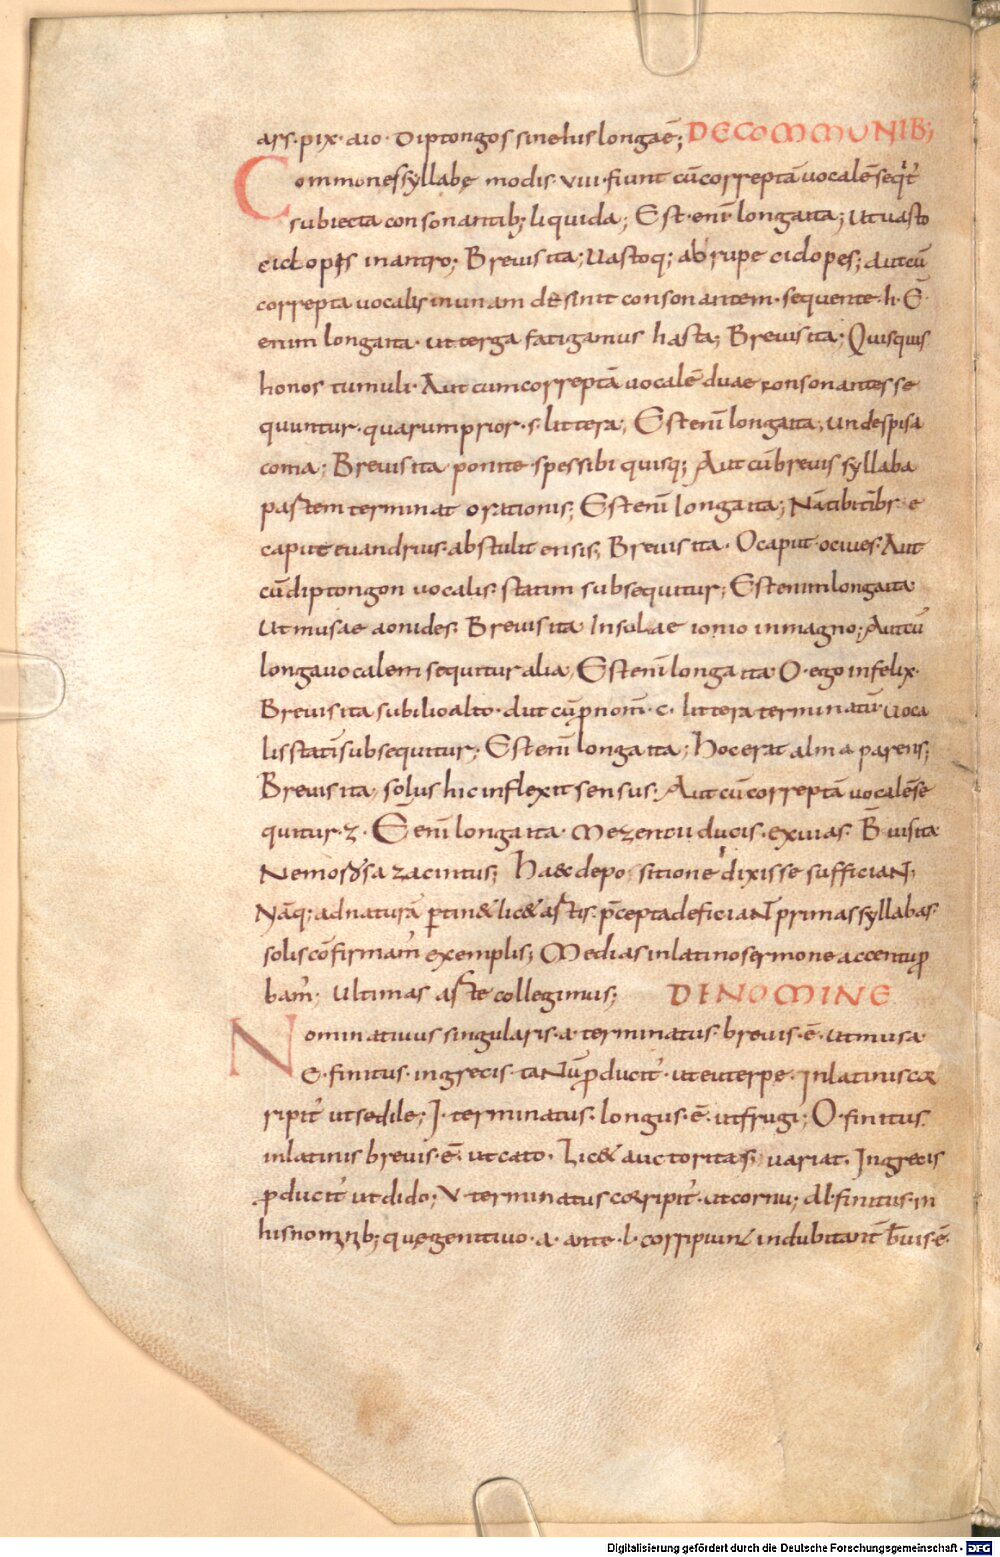 ars· pix· aio· Diptongos sinetus longaē; DE COMMUNIB;
Commones syllabę modis· VIII· fiunt cū correptā uocalē seqt̄
subiecta consonantib; liquida; Est enī longa ita; ut uasto
ciclopis in antro; Breuis ita; Uastoq; ab rupe ciclopes; aut cū
correpta uocalis in unam desinit consonantem· sequente· h· Ē
enim longa ita· ut terga fatigamus hasta; Breuis ita; Quisquis
honos tumuli· Aut cum correptā uocalē duae consonantes se
quuntur· quarum prior· s· littera; Est enī longa ita; undespisa
coma; Breuis ita ponite spes sibi quisq; Aut cū breuis syllaba
pastem terminat orationis; Est enī longa ita; Nā tibi tibr e
caput euandrius· abstulit ensis; Breuis ita· O caput· ociues· Aut
cū diptongon uocalis· statim subsequitur; Est enim longa ita
Ut musae aonides· Breuis ita Insulae ionio in magno; Aut cū
longa uocalem sequitur alia; Est enī longa ita O· ego infelix·
Breuis ita sub ilio alto· Aut cū p̄nom̄· c· littera terminatū· uoca
lis statī subsequitur; Est enī longa ita; hoc erat alma parens;
Breuis ita; solus hic inflexit sensus; Aut cū correptā uocalē se
quitur· z· Ē enī longa ita· Mezentii ducis· exuias· B̄uis ita
Nemorosa zacintus; Haec depositione dixisse sufficiant,
Nāq; ad naturā ꝑtin& lic& astis· p̄cepta deficiant primas syllabas·
solis cōfirmam̄ exemplis; Medias in latino sermone accentu ꝓ
bam̄; Ultimas aste collegimus; DE NOMINE
Nominatiuus singularis· a· terminatus· breuis· ē· ut musa·
E· finitus· in grecis· tantū ꝓducit̄· ut euterpe· In latinis cor
ripit̄ ut sedile; I· terminatus· longus· ē· ut frugi; O· finitus·
in latinis breuis· ē· ut cato· Lic& auctoritas, uariat· In grecis
ꝓducit̄ ut dido; V· terminatus corripit̄· ut cornu; Al· finitus· in
his nominib; quę genitiuo· a· ante· l· corripiunt indubitant̄ b̄uis· ē·
Digitalisierung gefördert durch die Deutsche Forschungsgemeinschaft · DFG